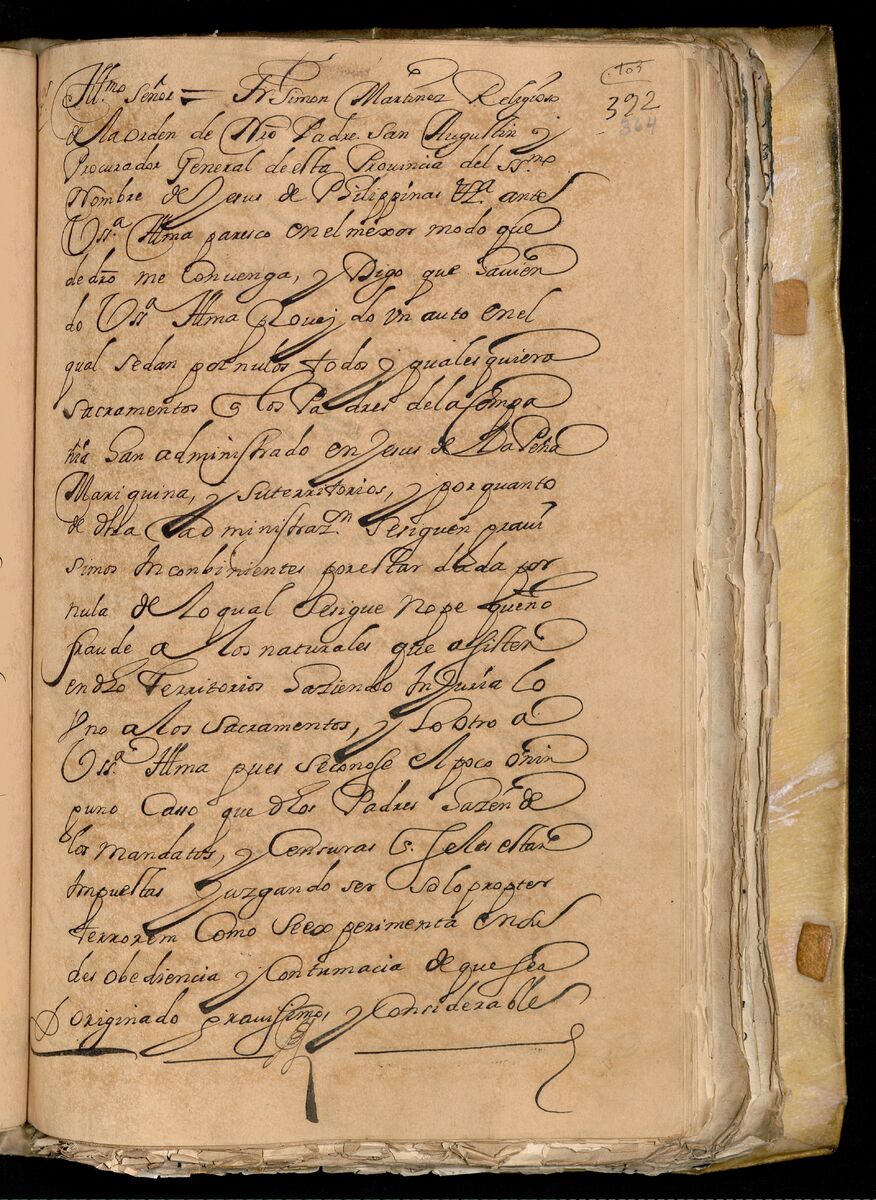 105
392
364
Illmo Señor = Fr. Simon Martinez Religioso
de la orden de Nro Padre San Augustin y
Procurador General de esta Provincia del SSmo
Nombre de Jesus de Philippinas Va. ante
Vssa. Illma paresco en el mexor modo que
de dro me Convenga, y Digo que havien
do Vssa Illma Proueydo vn auto en el
qual se dan por nulos todos y quales quiera
Sacramentos q los Padres de la Compa
ñia han administrado en Jesus de La Peña
Mariquina, y su territorios, y por quanto
de dha administrazn. se siguen graui
simos Inconbinientes por estar dada por
nula de lo qual se sigue no pequeño
fraude a los naturales que assisten
en dho Territorios haziendo Injuria lo
vno a los Sacramentos, y lo otro a
Vssa. Illma pues se conose el poco o nin
guno Casso que dhos Padres hazen de
los mandatos, y Censuras q. se les estan
Impuestas Juzgando ser solo propter
terrorem Como se experimenta en su
des obediencia y Contumacia de que sea
originado grauissimos y Considerables